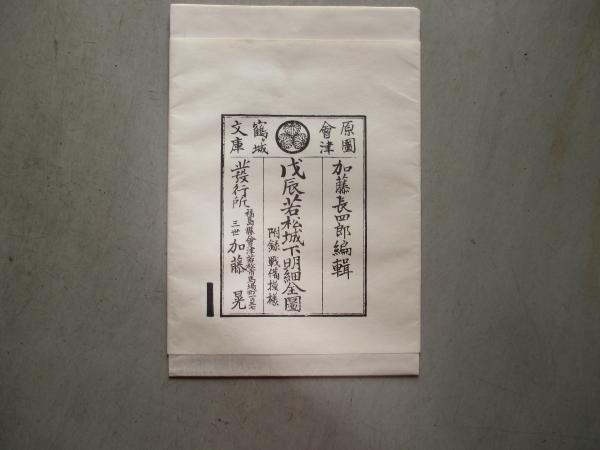 原圖
會津
鶴城
文庫
加藤長四郎編輯
戊辰若松城下明細全圖
附錄戰備模樣
發行所
福島縣會津若松市馬場町一百七
三世加藤晃